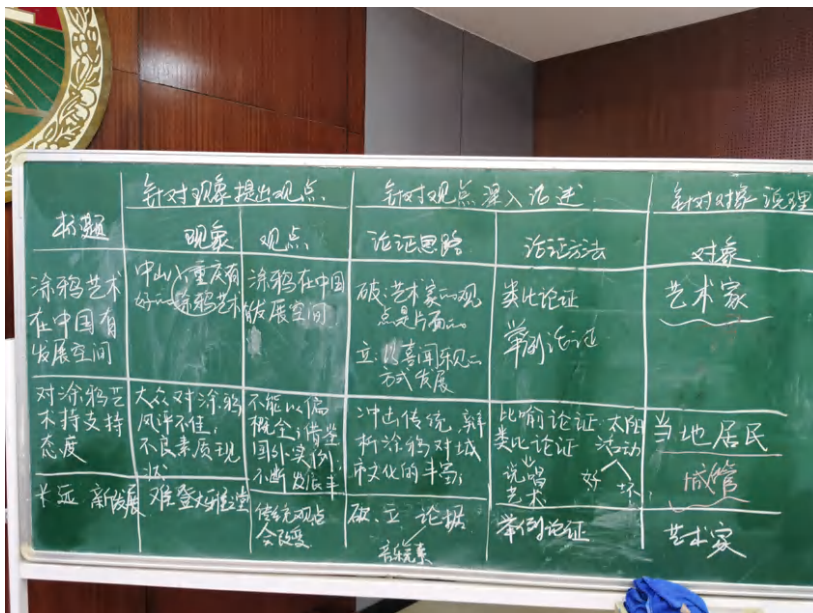 针对现象提出观点 针对观点深入论述 针对对象说理
标题 现象 观点 论证思路 论证方法 对象
涂鸦艺术
在中国有
发展空间
中山、重庆有
好的涂鸦艺术
涂鸦在中国
有发展空间
破:艺术家的观
点是片面的
立:以喜闻乐见的
方式发展
类比论证
举例论证
艺术家
对涂鸦艺
术持支持
态度
大众对涂鸦
风评不佳;
不良素质现
状
不能以偏
概全;借鉴
国外实例,
不断发展丰
冲击传统,辩
析涂鸦对城
市文化的丰富;
比喻论证:太阳
类比论证 活动
说唱
艺术
好 坏
当地居民
城管
长远 新发展
难登大雅之堂
传统观点
会改变
破、立 论据
举例论证
艺术家